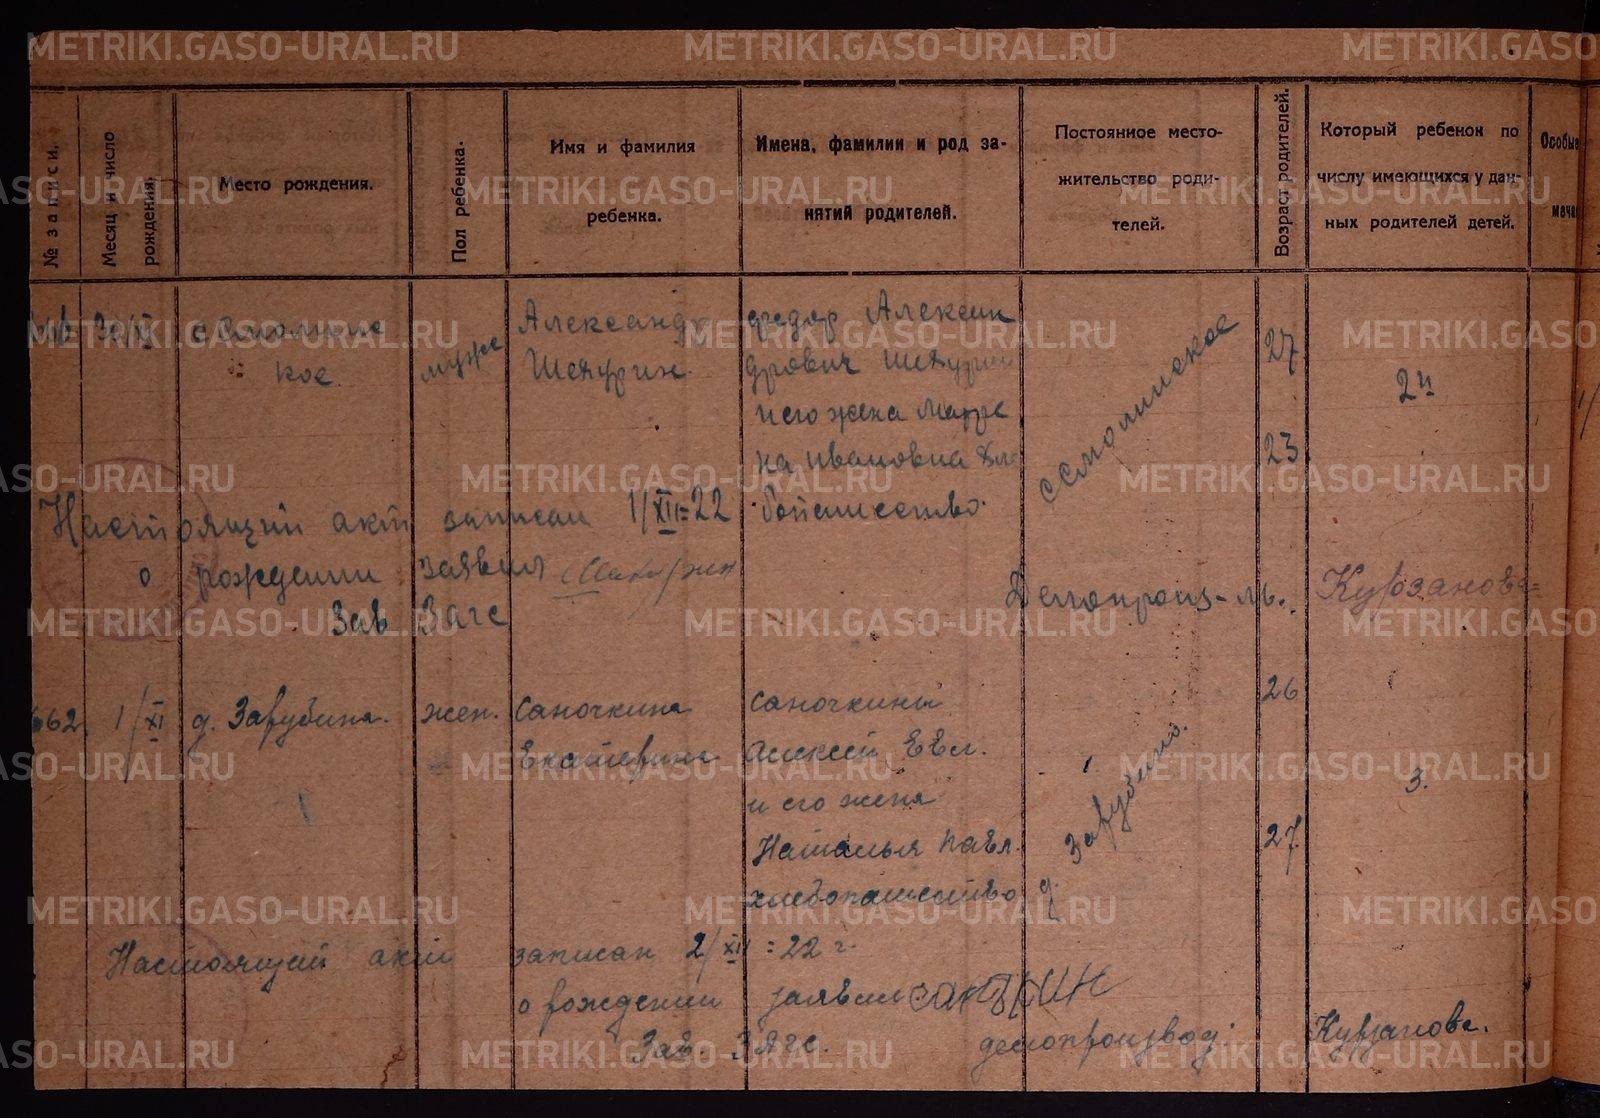 METRIKI.GASO-URAL.RU METRIKI.GASO-URAL.RU METRIKI.GASO
№ записи.
Месяц и число рождения.
Место рождения.
Пол ребенка.
Имя и фамилия
ребенка.
Имена, фамилии и род за-
нятий родителей.
Постоянное место-
жительство роди-
телей.
Возраст родителей.
Который ребенок по
числу имеющихся у дан-
ных родителей детей.
Особые
30/XI
с Смолинс
кое.
муж
Александр
Шекурин
Федор Алексан
дрович Шекурин
и его жена Матре
на Ивановна Хле
бопашество.
с Смолинское
27
23
2й
Настоящий акт записан 1/XII=22
о рождении заявил
Зав Загс
Делопроиз-ль.
Курзанова
662
1/XI
д. Зарубина.
жен.
Саночкина
Екатерина
Саночкины
Алексей Евл.
и его жена
Наталья Павл.
хлебопашество
д. Зарубино.
26
27
3.
Настоящий акт записан 2/XII=22 г.
о рождении заявил
Зав. ЗАГС. делопроизвод: Курзанова.